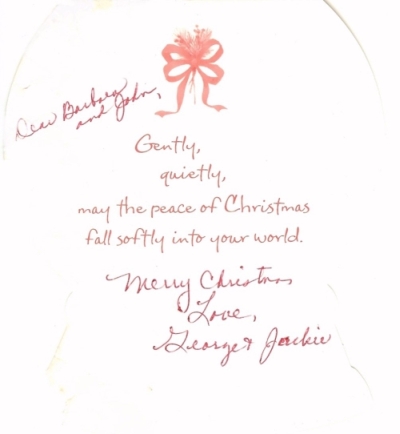 Dear Barbara
and John,
Gently,
quietly,
may the peace of Christmas
fall softly into your world.
Merry Christmas
Love,
George & Jackie